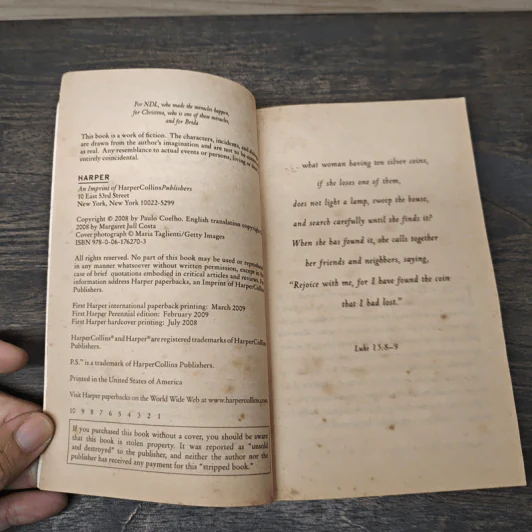 For NDL, who made the miracles happen,
for Christina, who is one of those miracles,
and for Brida
This book is a work of fiction. The characters, incidents, and
are drawn from the author's imagination and are not to be
as real. Any resemblance to actual events or persons, living or
entirely coincidental.
HARPER
An Imprint of HarperCollinsPublishers
10 East 53rd Street
New York, New York 10022-5299
Copyright © 2008 by Paulo Coelho. English translation copyright
2008 by Margaret Jull Costa
Cover photograph © Maria Taglienti/Getty Images
ISBN 978-0-06-176270-3
All rights reserved. No part of this book may be used or reproduced
in any manner whatsoever without written permission, except in the
case of brief quotations embodied in critical articles and reviews. For
information address Harper paperbacks, an Imprint of HarperCollins
Publishers.
First Harper international paperback printing: March 2009
First Harper Perennial edition: February 2009
First Harper hardcover printing: July 2008
HarperCollins® and Harper® are registered trademarks of HarperCollins
Publishers.
P.S.™ is a trademark of HarperCollins Publishers.
Printed in the United States of America
Visit Harper paperbacks on the World Wide Web at www.harpercollins.com
10 9 8 7 6 5 4 3 2 1
If you purchased this book without a cover, you should be aware
that this book is stolen property. It was reported as "unsold
and destroyed" to the publisher, and neither the author nor the
publisher has received any payment for this "stripped book."
what woman having ten silver coins,
if she loses one of them,
does not light a lamp, sweep the house,
and search carefully until she finds it?
When she has found it, she calls together
her friends and neighbors, saying,
"Rejoice with me, for I have found the coin
that I had lost."
Luke 15:8–9